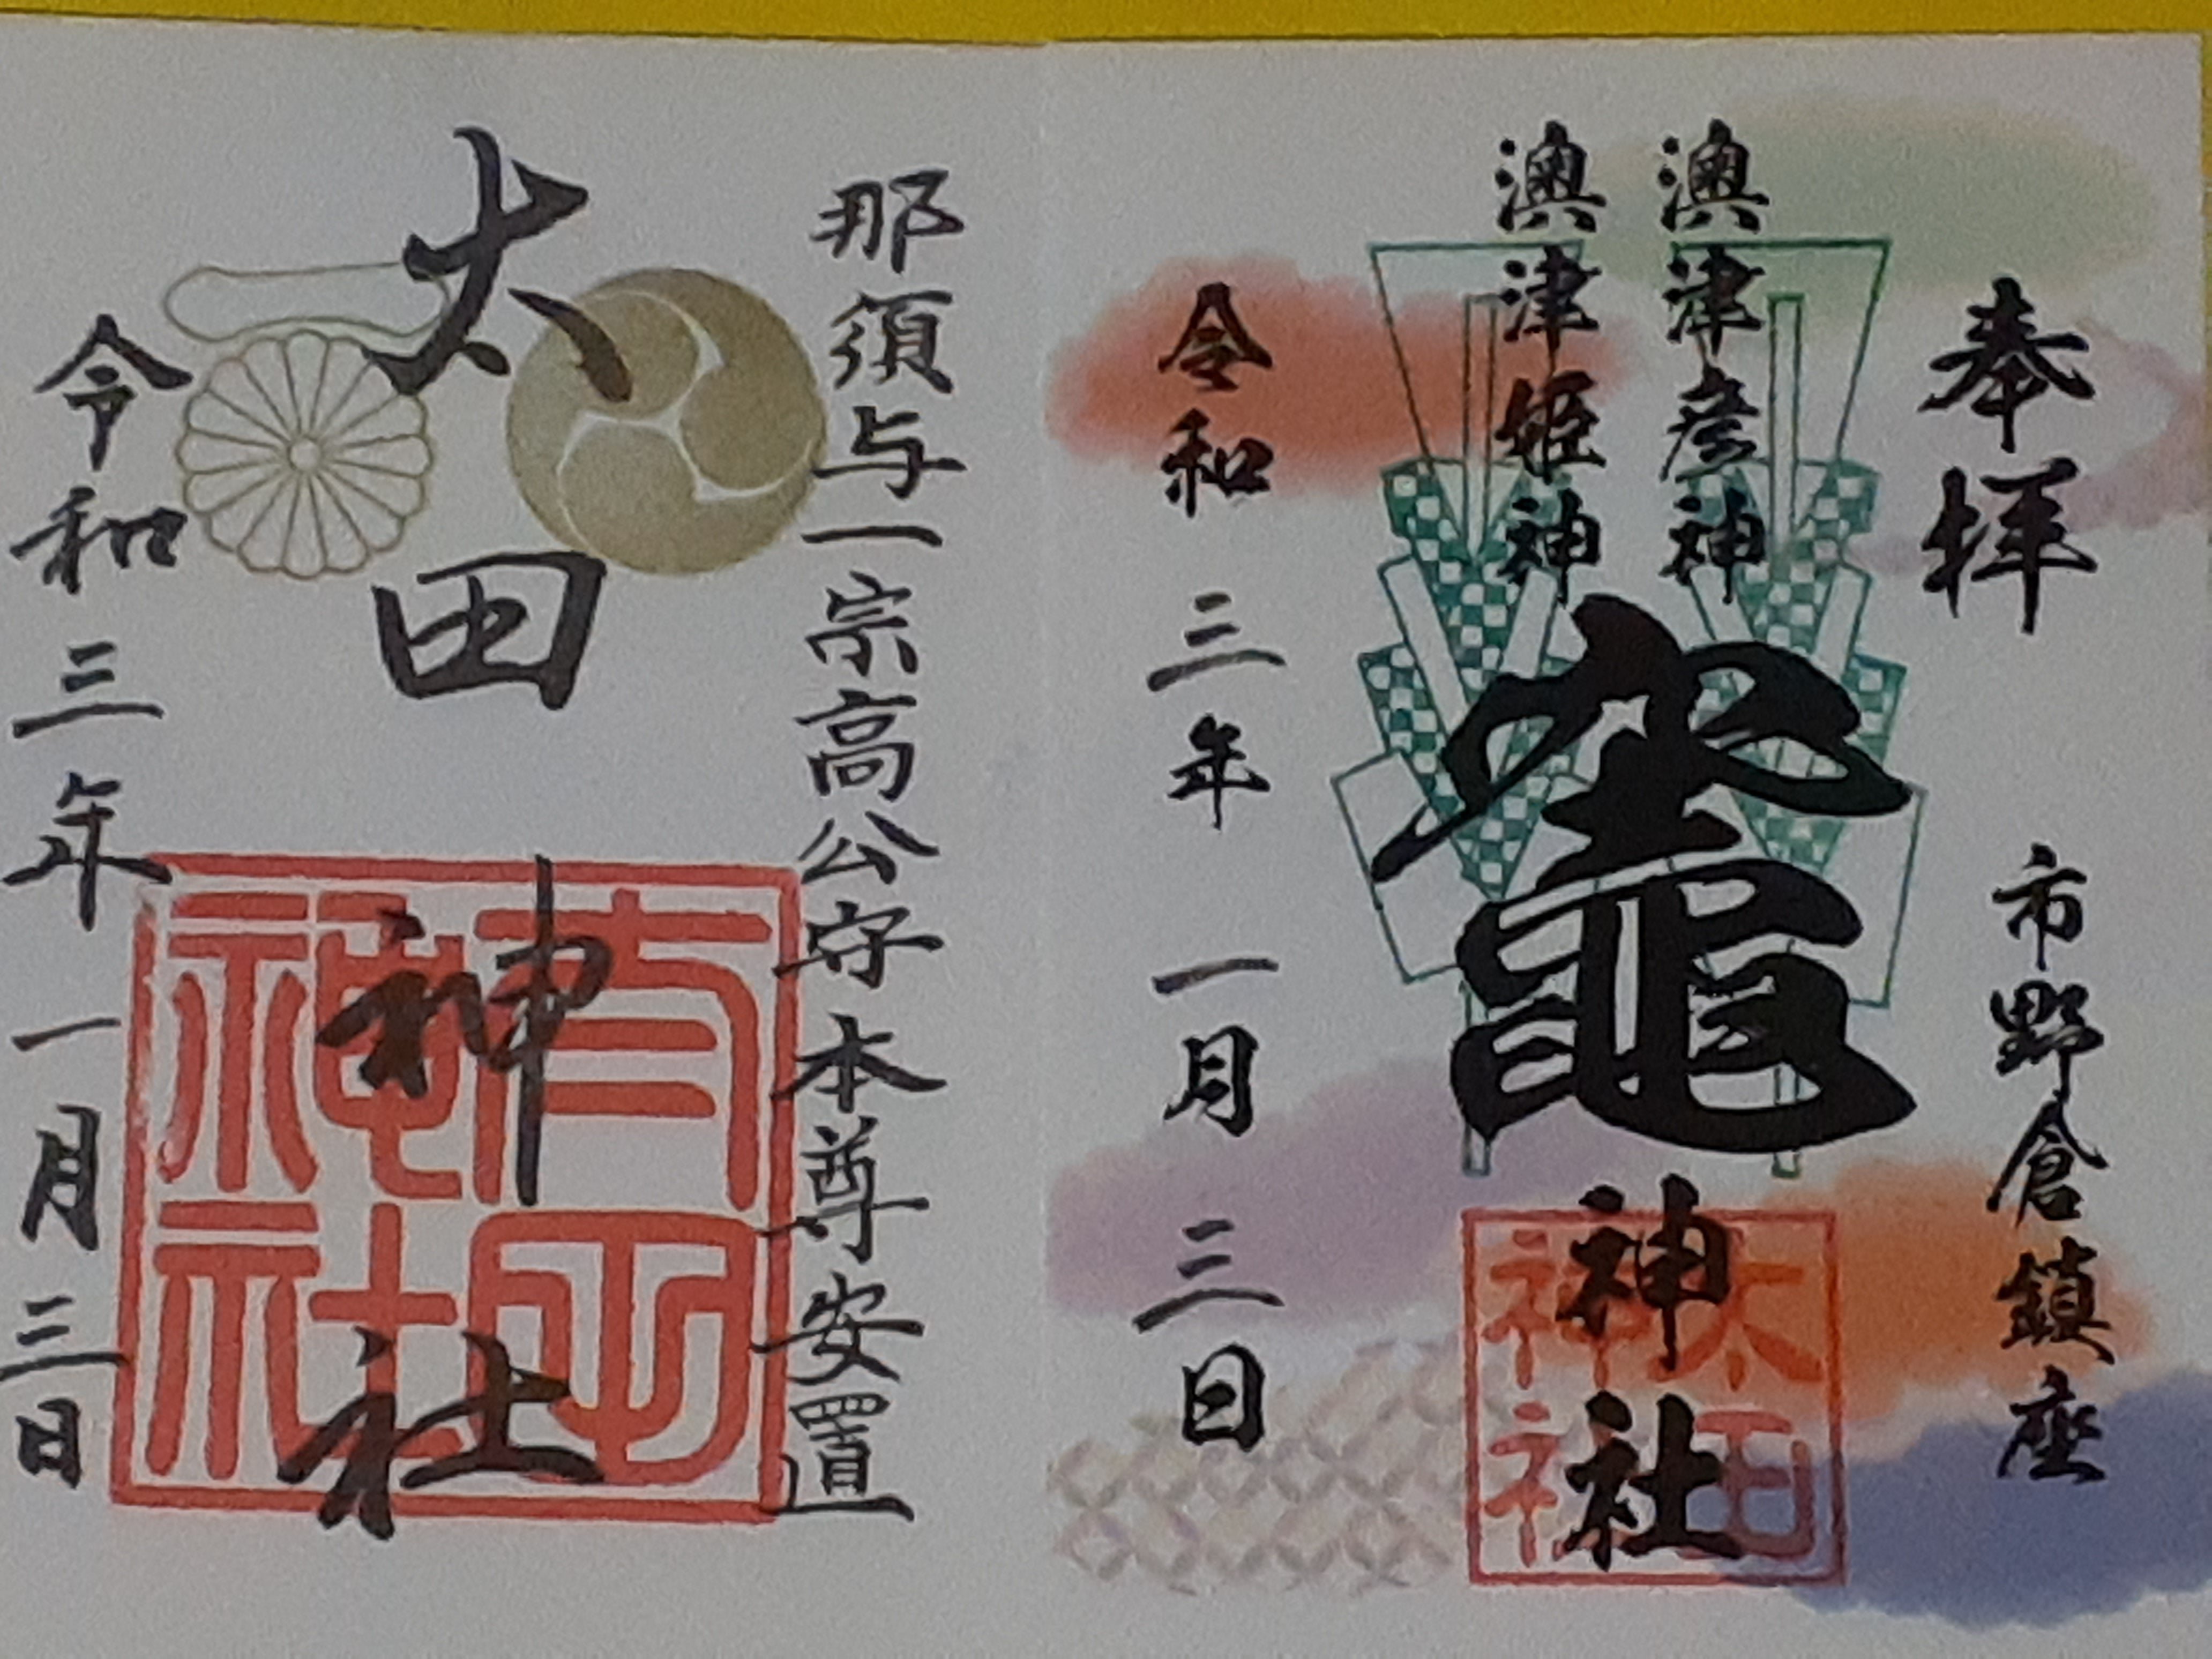 奉拝
市野倉鎮座
澳津彦神
澳津姫神
竈神社
太田神社
令和三年一月三日
那須与一宗高公守本尊安置
太田神社
太田神社
令和三年一月三日